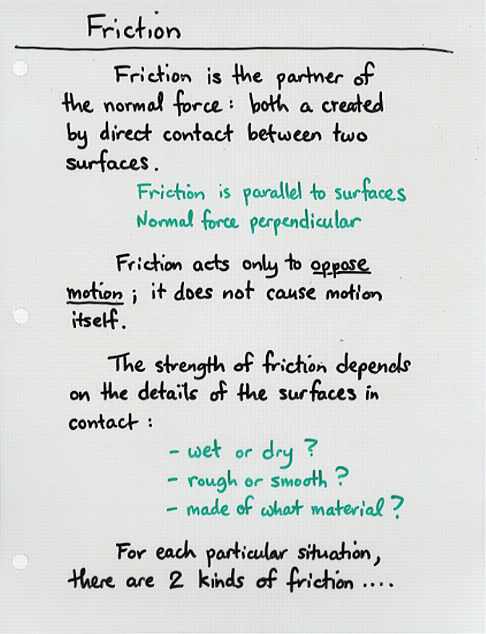 Friction
Friction is the partner of
the normal force: both a created
by direct contact between two
surfaces.
Friction is parallel to surfaces
Normal force perpendicular
Friction acts only to oppose
motion; it does not cause motion
itself.
The strength of friction depends
on the details of the surfaces in
contact:
- wet or dry?
- rough or smooth?
- made of what material?
For each particular situation,
there are 2 kinds of friction ....